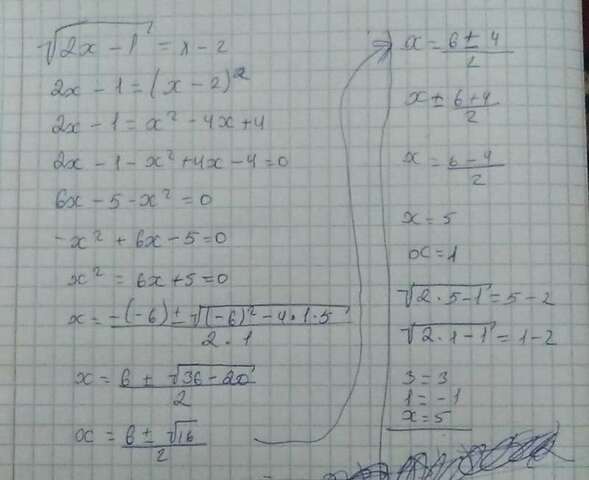 √(2x - 1) = x - 2
2x - 1 = (x - 2)²
2x - 1 = x² - 4x + 4
2x - 1 - x² + 4x - 4 = 0
6x - 5 - x² = 0
-x² + 6x - 5 = 0
x² = 6x + 5 = 0
x = (-(-6) ± √((-6)² - 4·1·5)) / (2·1)
x = (6 ± √(36 - 20)) / 2
x = (6 ± √16) / 2
x = (6 ± 4) / 2
x ± (6 + 4) / 2
x = (6 - 4) / 2
x = 5
x = 1
√(2·5 - 1) = 5 - 2
√(2·1 - 1) = 1 - 2
3 = 3
1 = -1
x = 5